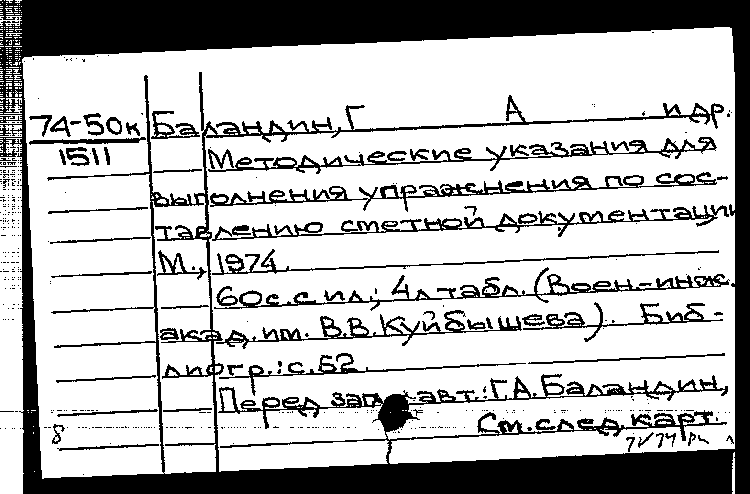 74-50к Баландин, Г А и др.
1511 Методические указания для
выполнения упражнения по сос-
тавлению сметной документации
М., 1974.
60с. с ил.; 4л табл. (Воен.-инж.
акад. им. В.В. Куйбышева). Биб-
лиогр.: с.52.
Перед загл. авт.: Г.А. Баландин,
См. след. карт.
8